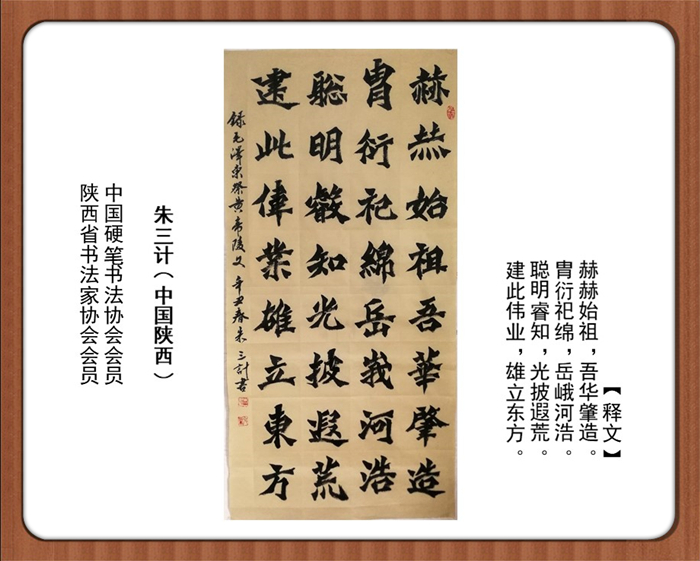 【释文】
赫赫始祖，吾华肇造。
胄衍祀绵，岳峨河浩。
聪明睿知，光披遐荒。
建此伟业，雄立东方。
赫赫始祖吾華肇造
胄衍祀綿岳峩河浩
聡明叡知光披遐荒
建此偉業雄立東方
錄毛澤東祭黄帝陵文辛丑春朱三計書
朱三计（中国陕西）
中国硬笔书法协会会员
陕西省书法家协会会员